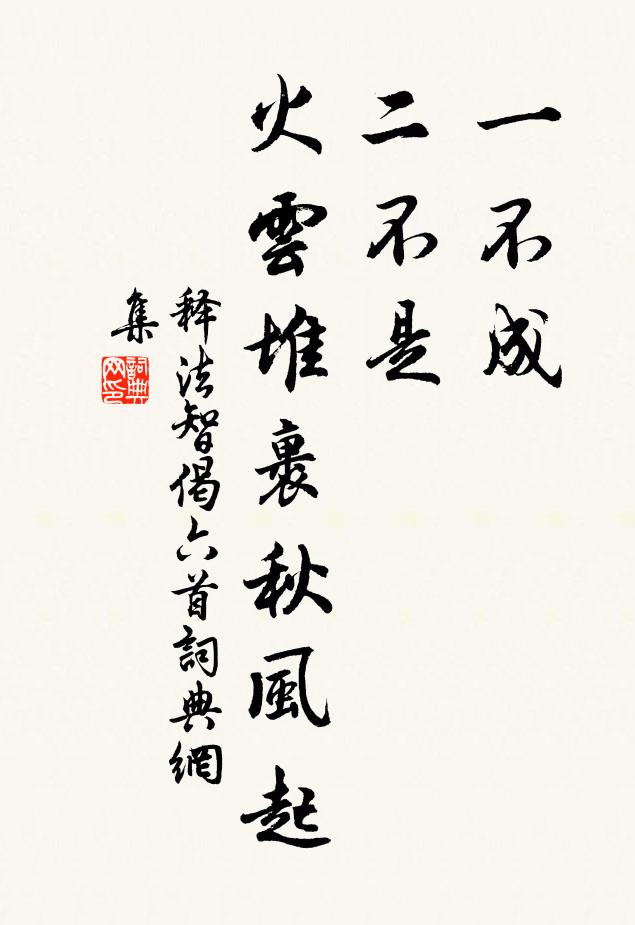 一不成
二不是
火雲堆裹秋風起
释法智偈六首詞典網
集
詞典網印